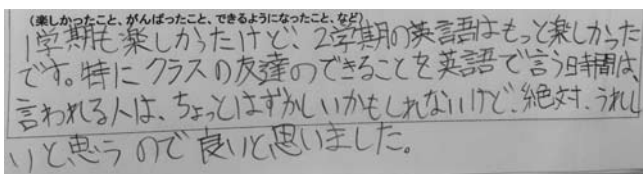 (楽しかったこと、がんばったこと、できるようになったこと、など)
1学期も楽しかったけど、2学期の英語はもっと楽しかった
です。特にクラスの友達のできることを英語で言う時間は
言われる人は、ちょっとはずかしいかもしれないけど、絶対、うれし
いと思うので良いと思いました。